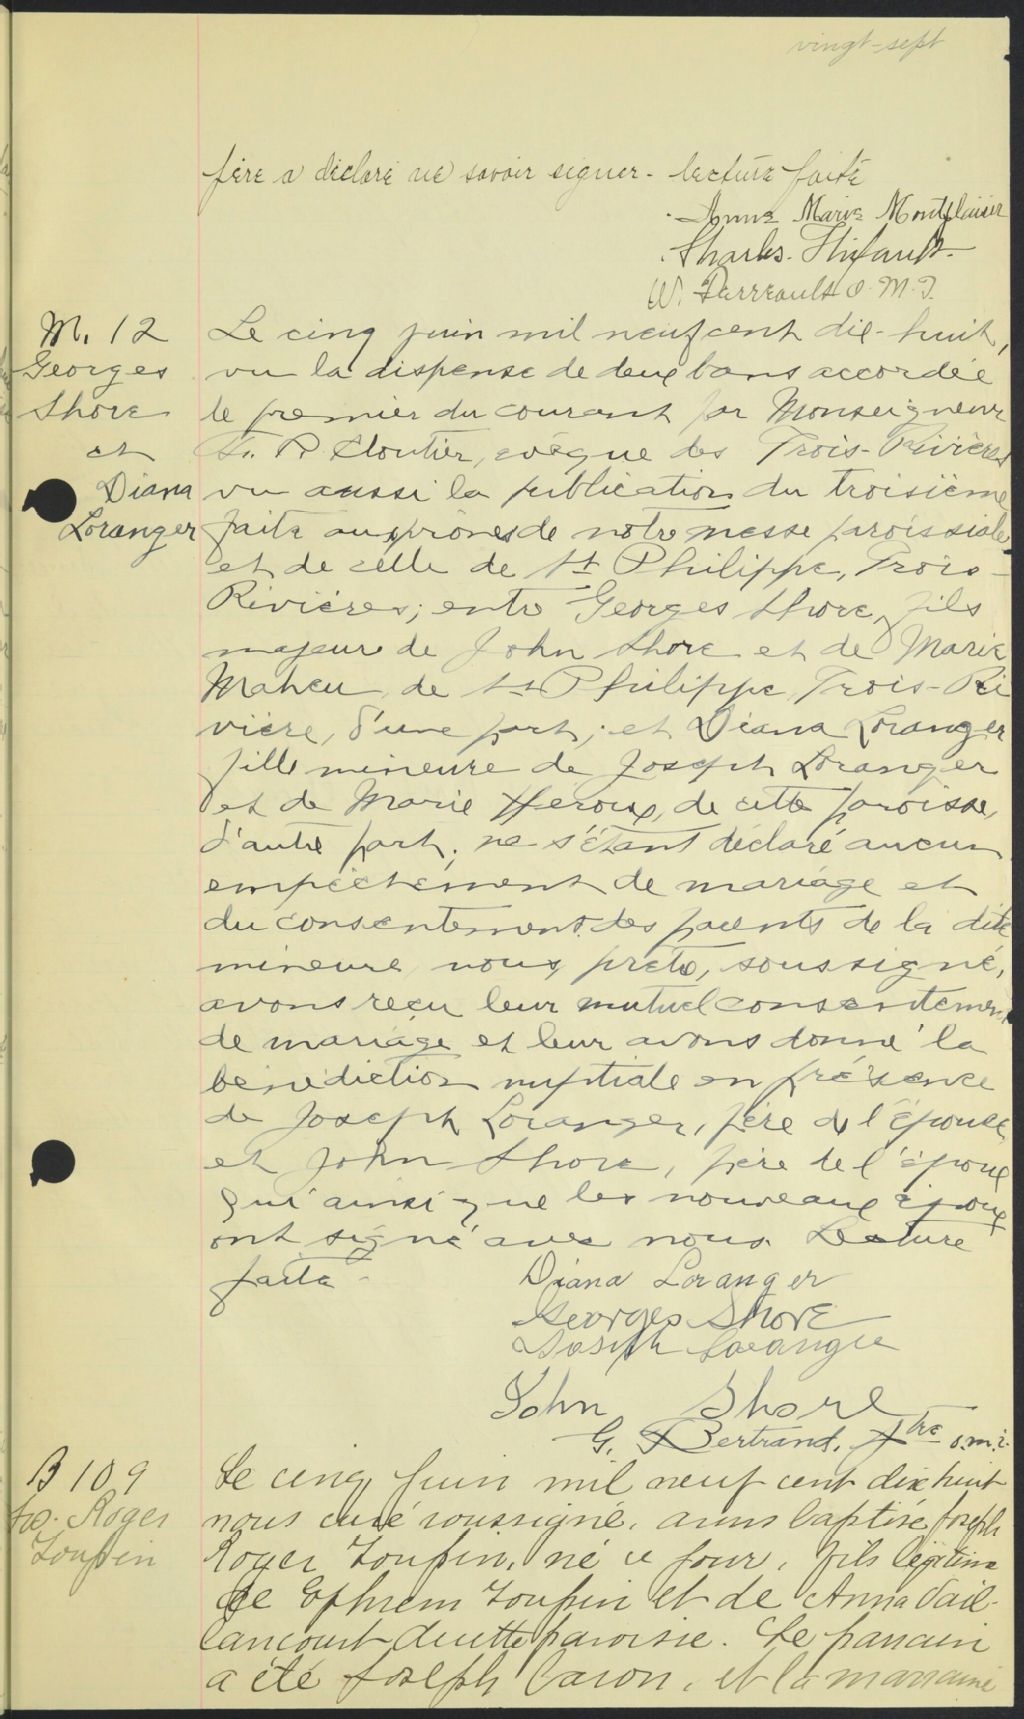 vingt-sept
père a déclaré ne savoir signer - lecture faite
Anna Marie Montplaisir
Charles Thifault
W. Perreault O.M.I.
M. 12
Georges
Shore
et
Diana
Loranger
Le cinq juin mil neuf cent dix-huit,
vu la dispense de deux bans accordée
le premier du courant par Monseigneur
F. X. Cloutier, évêque des Trois-Rivières
vu aussi la publication du troisième
faite aux prônes de notre messe paroissiale
et de celle de St Philippe, Trois-
Rivières; entre Georges Shore, fils
majeur de John Shore et de Marie
Maheu, de St Philippe, Trois-Ri
vière, d'une part; et Diana Loranger
fille mineure de Joseph Loranger
et de Marie Heroux, de cette paroisse,
d'autre part; ne s'étant déclaré aucun
empêchement de mariage et
du consentement des parents de la dite
mineure, nous, prêtre, soussigné,
avons reçu leur mutuel consentement
de mariage et leur avons donné la
bénédiction nuptiale en présence
de Joseph Loranger, père de l'épouse,
et John Shore, père de l'époux
qui ainsi que les nouveaux époux
ont signé avec nous. Lecture
faite -
Diana Loranger
Georges Shore
Joseph Loranger
John Shore
G. Bertrand, ptre o.m.i.
B 109
Jos. Roger
Toupin
Le cinq Juin mil neuf cent dix huit
nous curé soussigné, avons baptisé Joseph
Roger Toupin, né ce jour, fils légitime
de Ephrem Toupin et de Anna Vail-
lancourt de cette paroisse. Le parrain
a été Joseph Caron, et la marraine